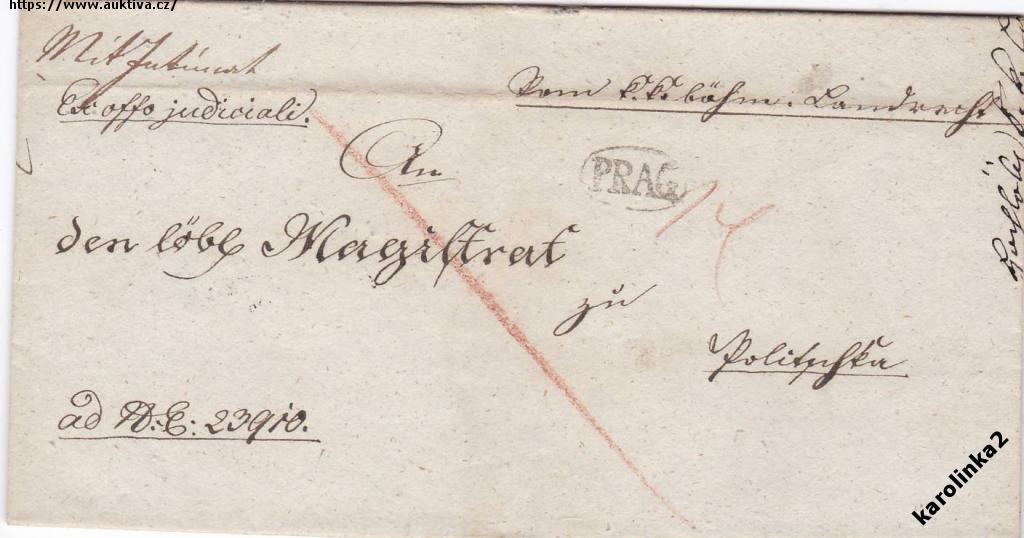 https://www.auktiva.cz/
Mit Intimat
Ex: offo judiciali.
Vom k.k. böhm. Landrecht
An
PRAG
den löbl Magistrat
zu
Politschka
ad N: E: 23910.
karolinka2